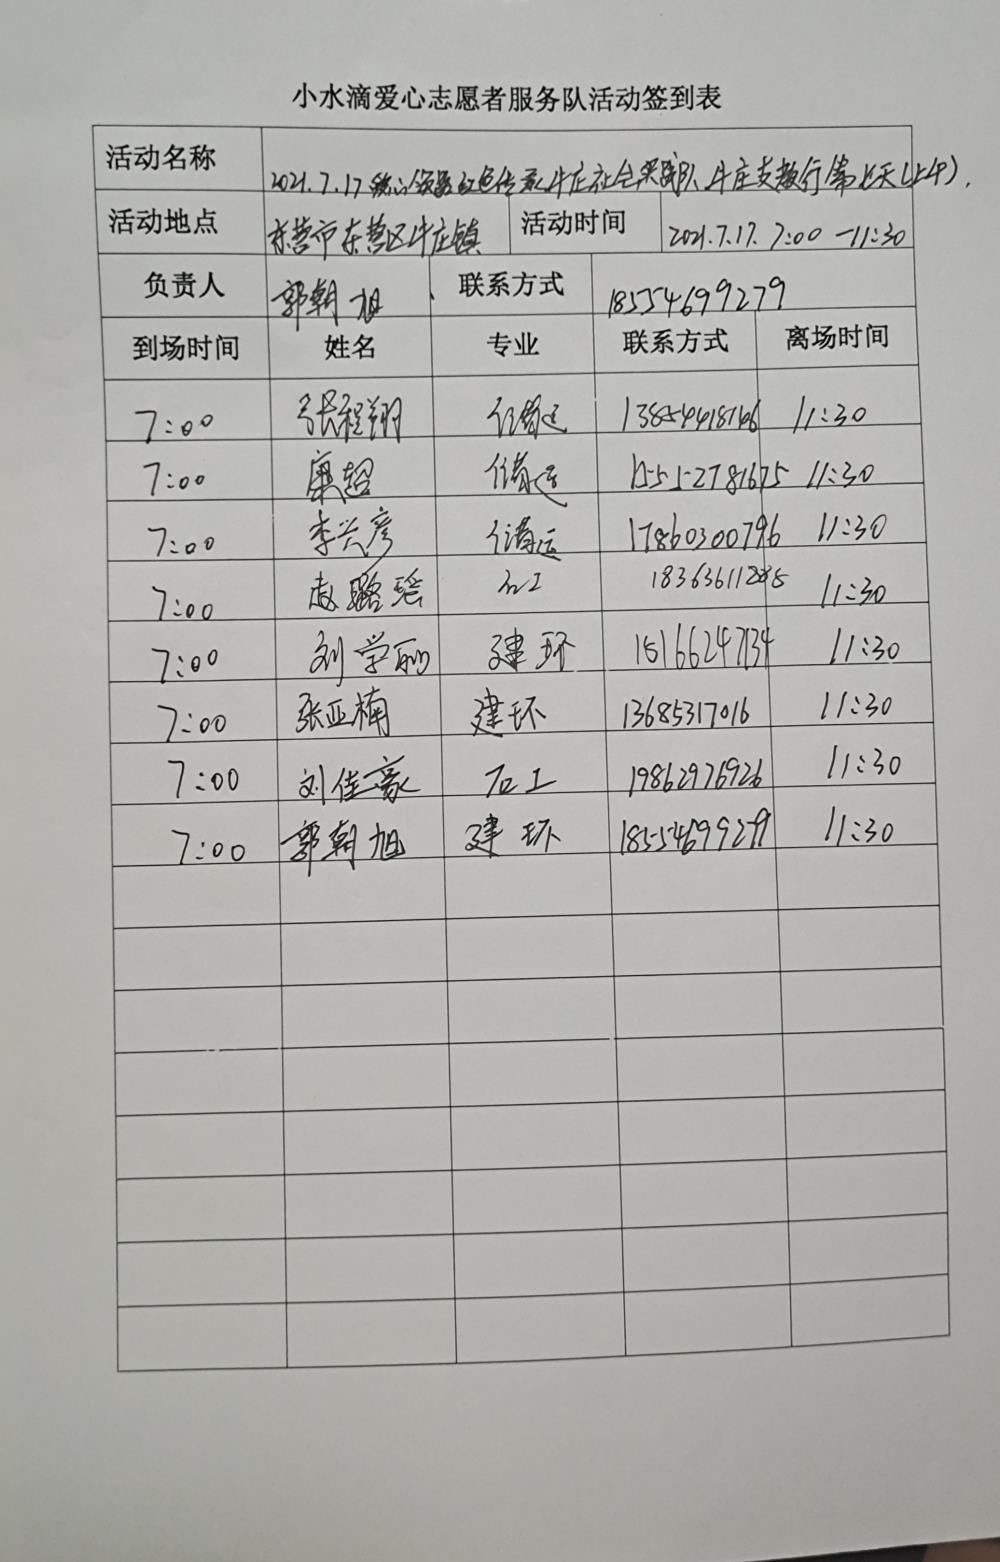 小水滴爱心志愿者服务队活动签到表
活动名称 2021.7.17 红色传承牛庄社会实践队牛庄支教行(第七天(上午).
活动地点 东营市东营区牛庄镇 活动时间 2021.7.17. 7:00-11:30
负责人 郭朝旭 联系方式 18554699279
到场时间 姓名 专业 联系方式 离场时间
7:00 张程翔 储运 11:30
7:00 康超 储运 15552781675 11:30
7:00 李兴彦 储运 17860300796 11:30
7:00 赵璐瑶 11:30
7:00 刘学丽 建环 15166247134 11:30
7:00 张亚楠 建环 13685317016 11:30
7:00 刘佳豪 石工 19862976926 11:30
7:00 郭朝旭 建环 18554699279 11:30